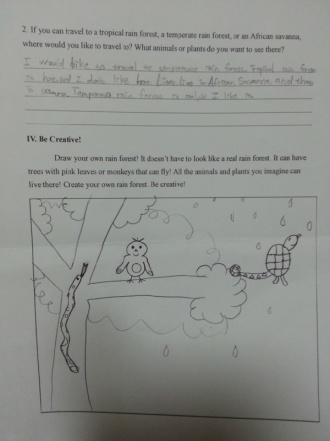 2. If you can travel to a tropical rain forest, a temperate rain forest, or an African savanna,
where would you like to travel to? What animals or plants do you want to see there?
I would like to travel to temperate rain forest. Tropical rain forest
is hot and I don't like hot. Lions live in African Savanna and there
is warm. Temperate rain forest is only I like is
IV. Be Creative!
Draw your own rain forest! It doesn't have to look like a real rain forest. It can have
trees with pink leaves or monkeys that can fly! All the animals and plants you imagine can
live there! Create your own rain forest. Be creative!